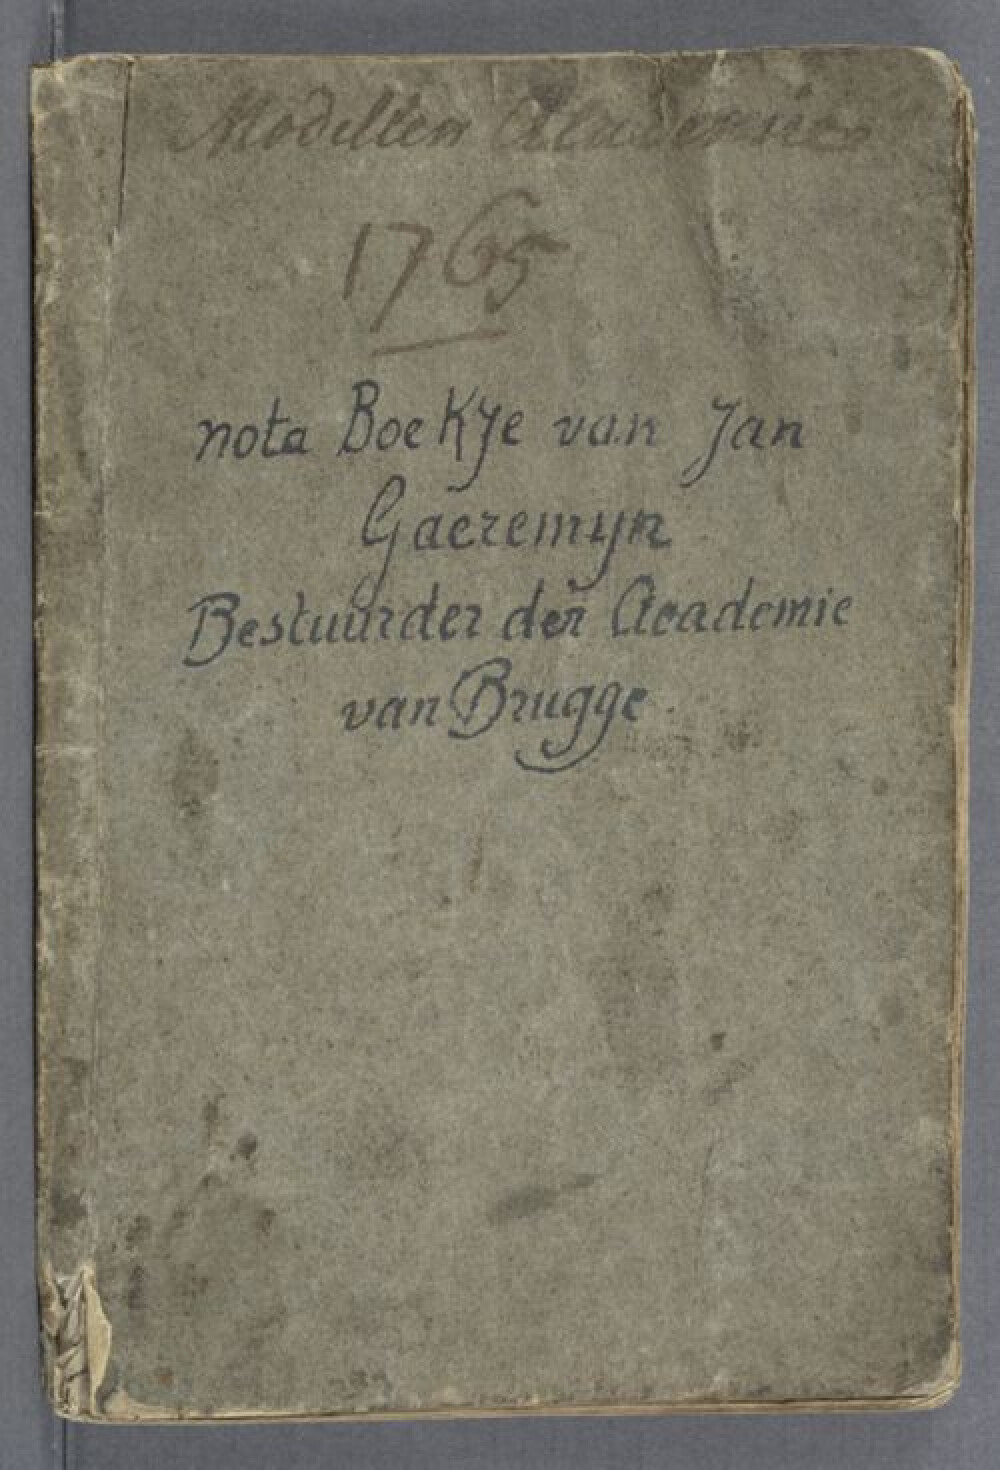 Modellen Academie
1765
nota Boekje van Jan
Gaeremyn
Bestuurder der Academie
van Brugge.